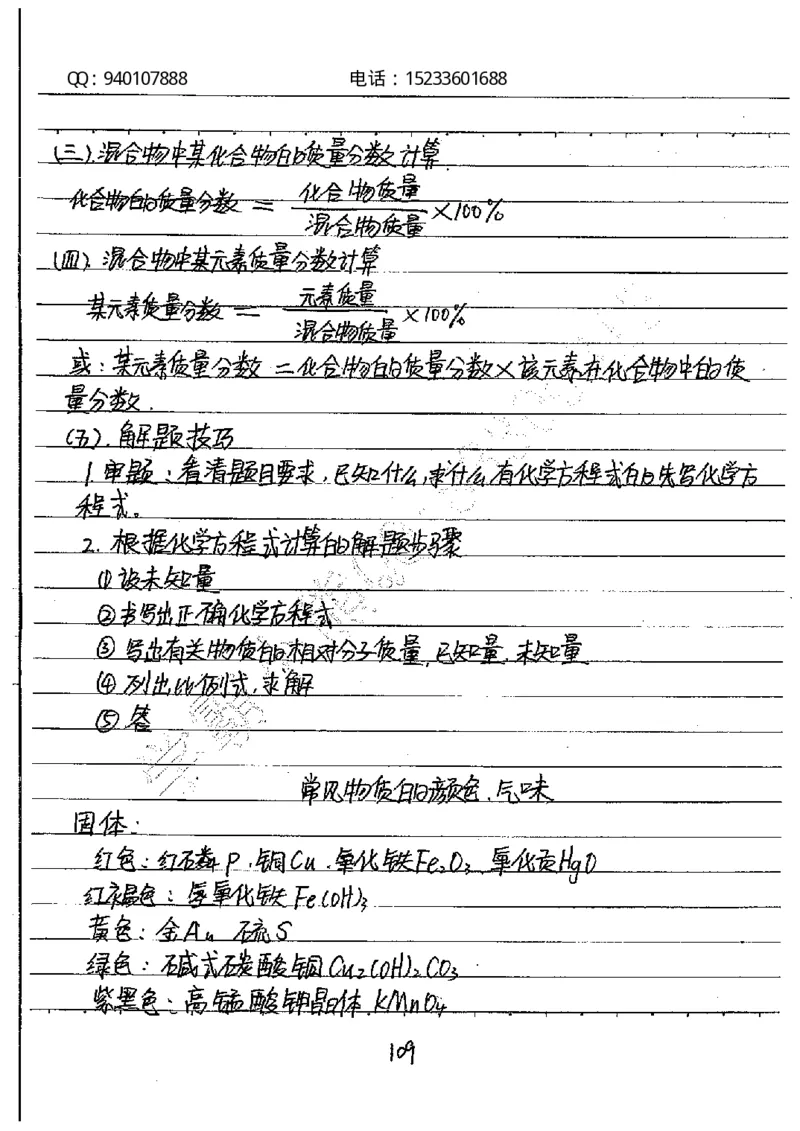 QQ：940107888 电话：15233601688
(三).混合物中某化合物的质量分数计算
化合物的质量分数 = 化合物质量 / 混合物质量 ×100%
(四).混合物中某元素质量分数计算
某元素质量分数 = 元素质量 / 混合物质量 ×100%
或：某元素质量分数 = 化合物的质量分数×该元素在化合物中的质
量分数.
(五).解题技巧
1.审题：看清题目要求,已知什么,求什么,有化学方程式的先写化学方
程式。
2.根据化学方程式计算的解题步骤
①设未知量
②书写出正确化学方程式
③写出有关物质的相对分子质量,已知量,未知量
④列出比例式,求解
⑤答
常见物质的颜色、气味
固体：
红色：红磷P、铜Cu、氧化铁Fe₂O₃ 氧化汞HgO
红褐色：氢氧化铁Fe(OH)₃
黄色：金Au 硫S
绿色：碱式碳酸铜Cu₂(OH)₂CO₃
紫黑色：高锰酸钾晶体 KMnO₄
109